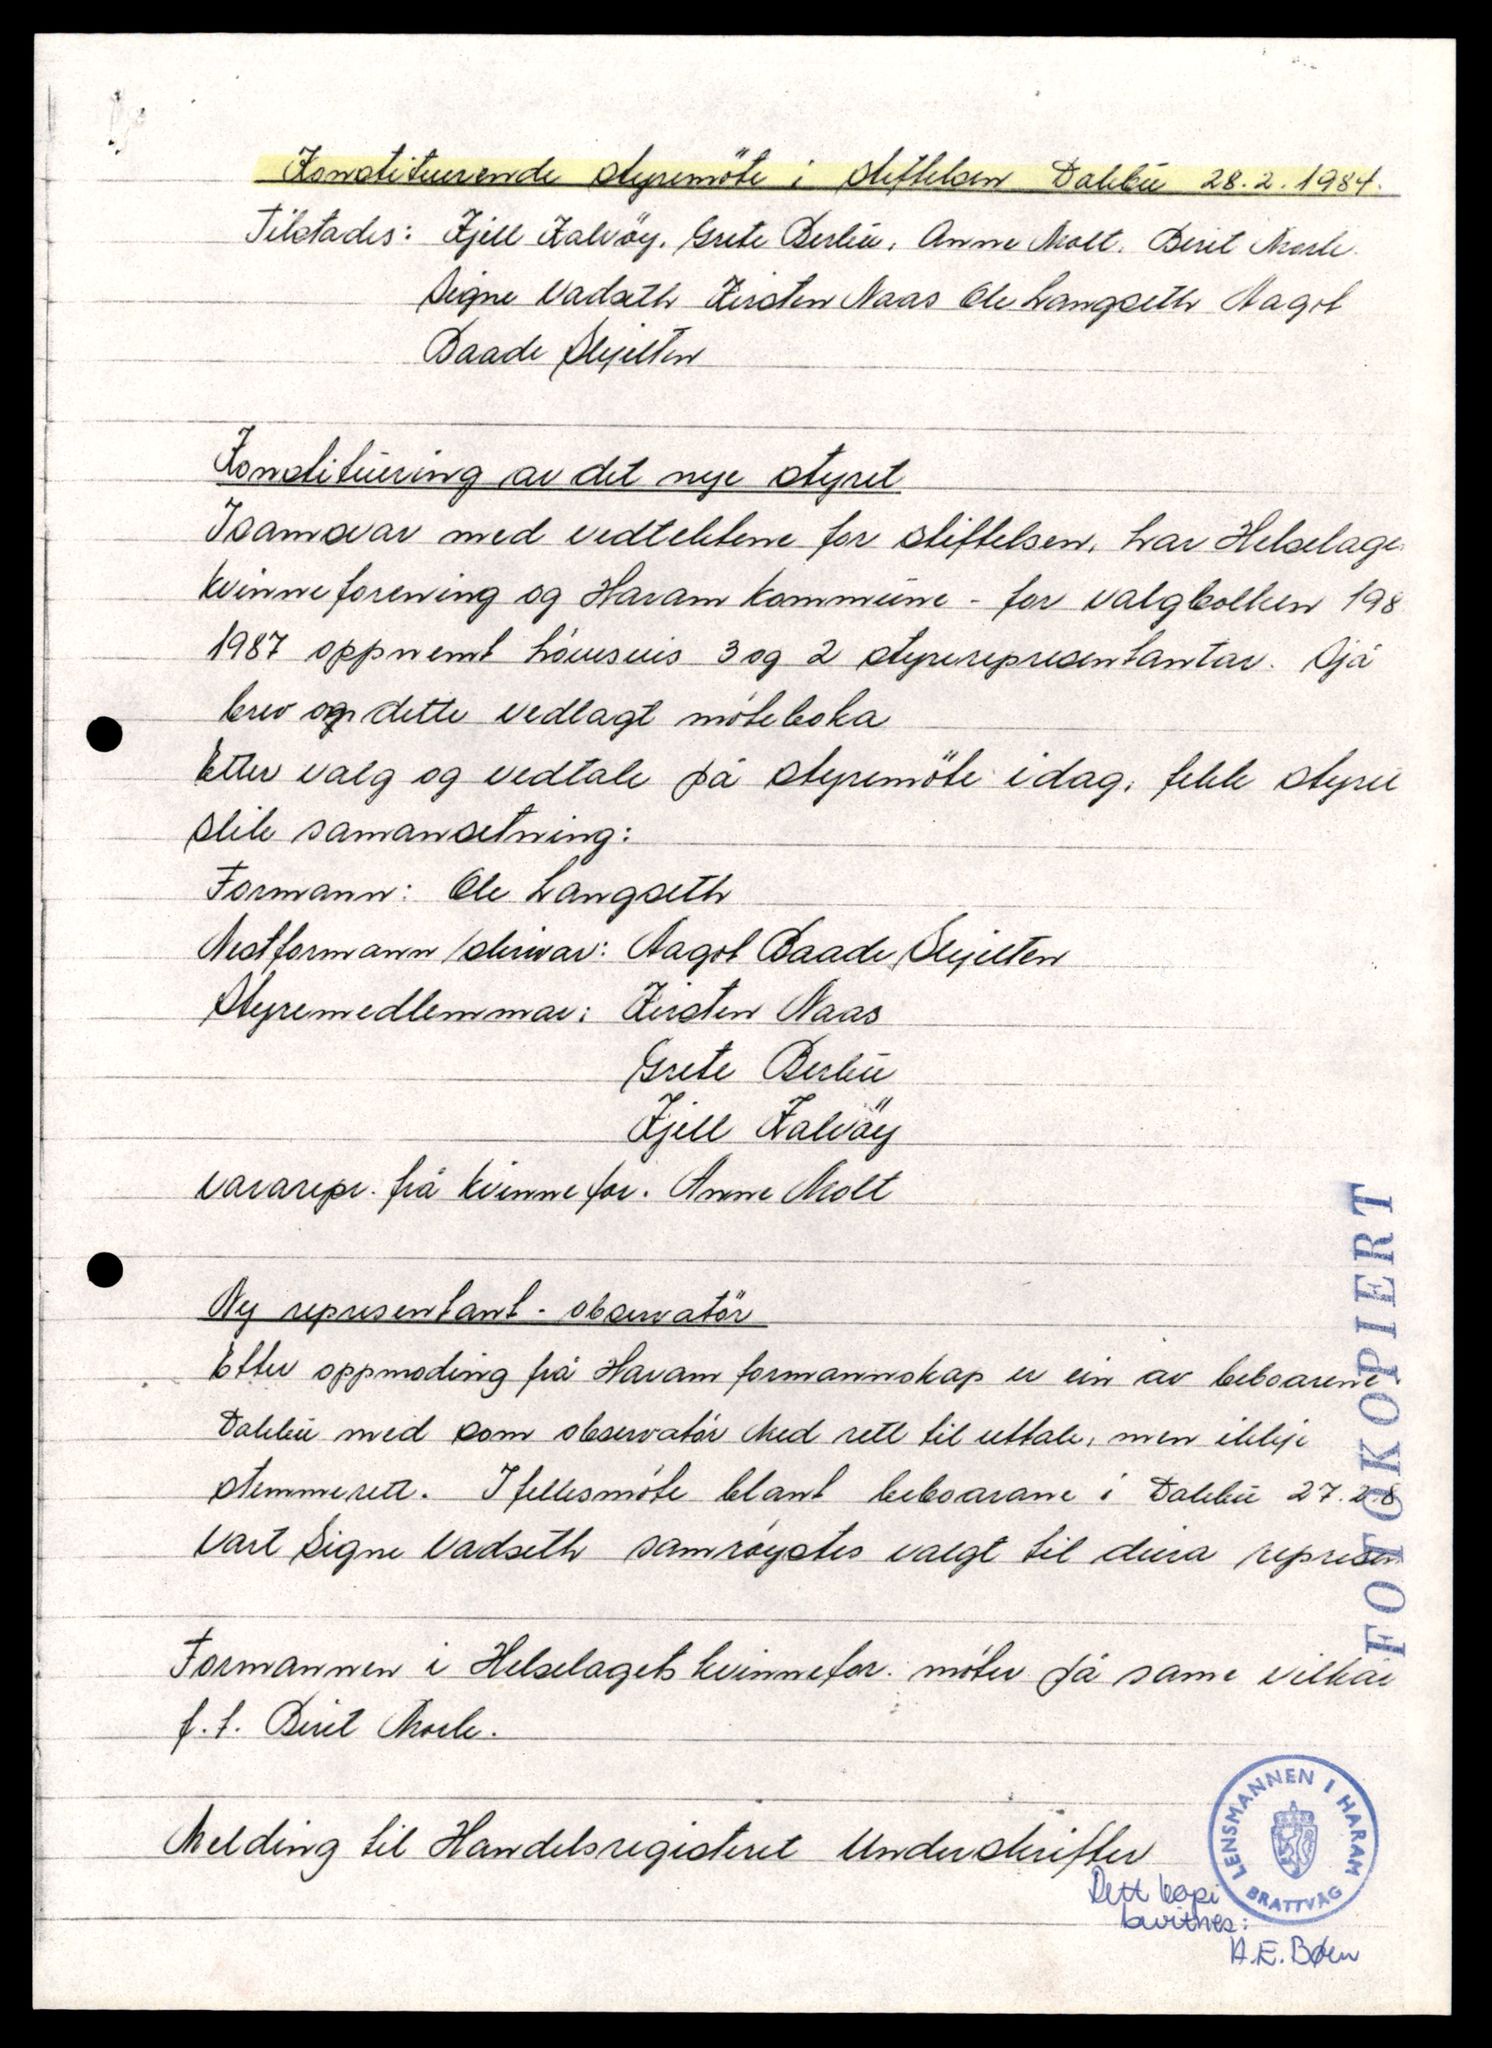 Konstituerende styremöte i stiftelsen Dalebu 28.2.1984.
Tilstades: Kjell Kalvöy, Grete Berbu, Anne Molt, Berit
Signe Vadseth Kirsten Naas Ole Langseth Aagot
Baade Skjelten
Konstituering av det nye styret
I samsvar med vedtektene for stiftelsen, har Helselage
kvinneforening og Haram kommune - for valgbolken 198
1987 oppnemt hövesvis 3 og 2 styrerepresentantar. Sjå
brev om dette vedlagt möteboka
Etter valg og vedtak på styremöte idag, fekk styre
slik samansetning:
Formann: Ole Langseth
Nestformann/skrivar: Aagot Baade Skjelten
Styremedlemmar: Kirsten Naas
Grete Berbu
Kjell Kalvöy
vararepr. frå kvinnefor. Anne Molt
Ny representant - observatör
Etter oppmoding frå Haram formannskap er ein av beboarene
Dalebu med som observatör med rett til uttale, men ikkje
stemmerett. I fellesmöte blant beboarane i Dalebu 27.2.8
vart Signe Vadseth samröystes valgt til deira represen
Formannen i Helselagets kvinnefor. möter på same vilkår
f.t. Berit
Melding til Handelsregisteret Underskrifter
FOTOKOPIERT
LENSMANNEN I HARAM
BRATTVÅG
Rett kopi
bevitnes:
A.E. Böen